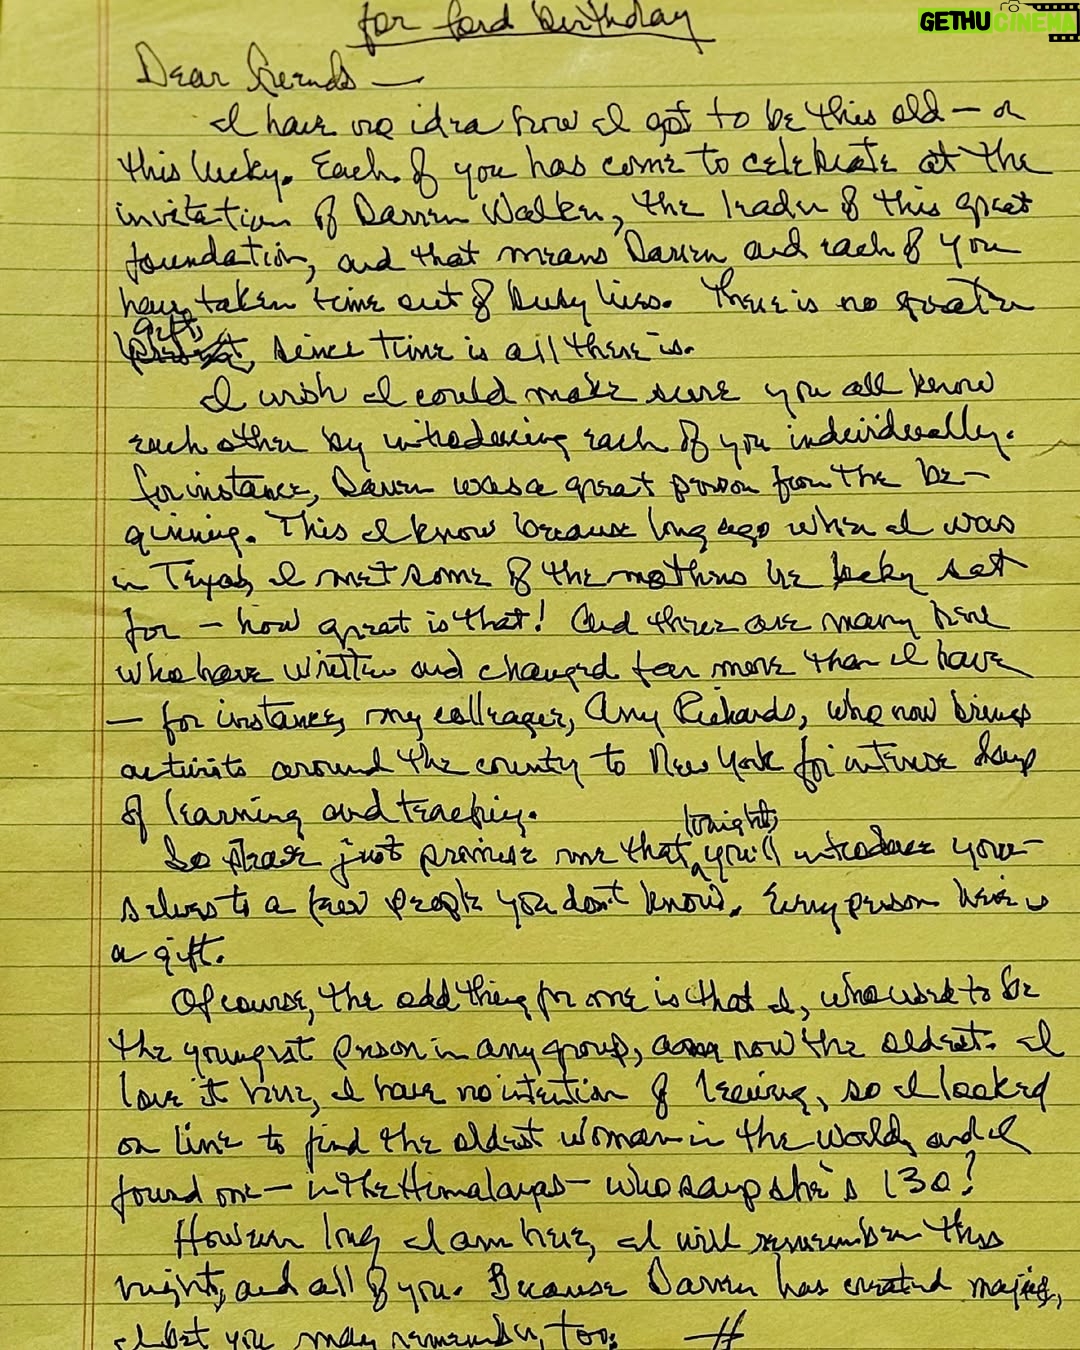 GETHUCINEMA
for ford birthday
Dear friends —
I have no idea how I got to be this old — or
this lucky. Each of you has come to celebrate at the
invitation of Darren Walker, the leader of this great
foundation, and that means Darren and each of you
have taken time out of busy lives. There is no greater
gift, since time is all there is.
I wish I could make sure you all know
each other by introducing each of you individually.
For instance, Darren was a great person from the be-
ginning. This I know because long ago when I was
in Texas, I met some of the mothers he baby sat
for — how great is that! And there are many here
who have written and changed far more than I have
— for instance, my colleague, Amy Richards, who now brings
activists around the country to New York for intense days
of learning and teaching.
So please just promise me that tonight, you'll introduce your-
selves to a few people you don't know. Every person here is
a gift.
Of course, the odd thing for me is that I, who used to be
the youngest person in any group, am now the oldest. I
love it here, I have no intention of leaving, so I looked
on line to find the oldest woman in the world, and I
found one — in the Himalayas — who says she's 130!
However long I am here, I will remember this
night, and all of you. Because Darren has created magic,
I bet you may remember, too. #